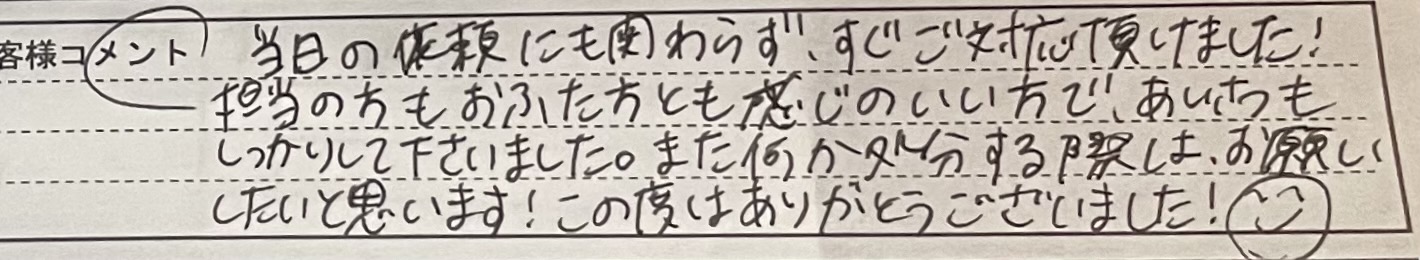 客様コメント 当日の依頼にも関わらず、すぐご対応頂けました!
担当の方もおふた方とも感じのいい方で、あいさつも
しっかりして下さいました。また何か処分する際は、お願い
したいと思います!この度はありがとうございました!